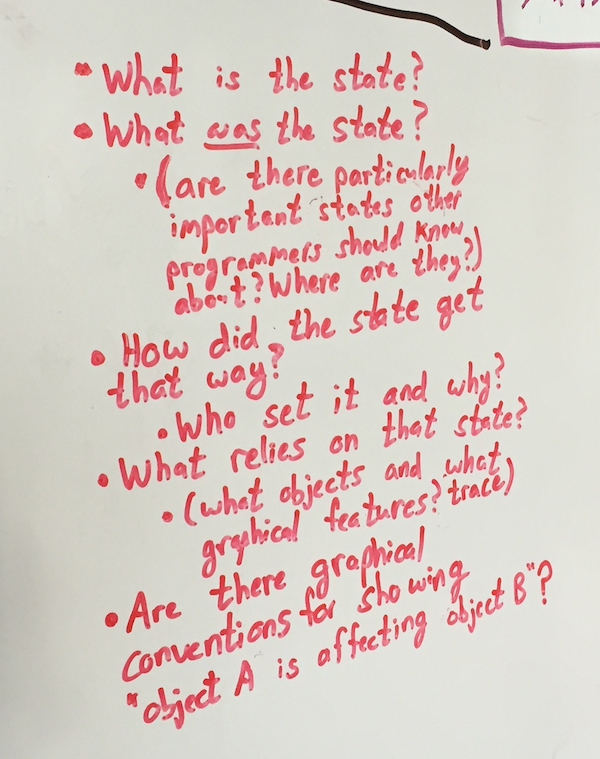 • What is the state?
• What was the state?
• (are there particularly
important states other
programmers should know
about? Where are they?)
• How did the state get
that way?
• Who set it and why?
• What relies on that state?
• (what objects and what
graphical features? trace)
• Are there graphical
conventions for showing
"object A is affecting object B"?